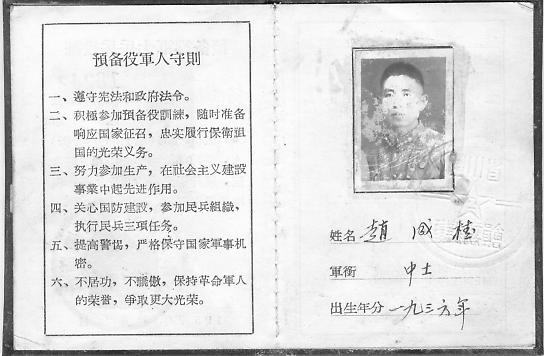 預备役軍人守則
一、遵守宪法和政府法令。
二、积極参加預备役訓練，随时准备
响应国家征召，忠实履行保衛祖
国的光荣义务。
三、努力参加生产，在社会主义建設
事業中起先进作用。
四、关心国防建設，参加民兵組織，
执行民兵三項任务。
五、提高警惕，严格保守国家軍事机
密。
六、不居功，不驕傲，保持革命軍人
的荣誉，争取更大光荣。
姓名 趙成桂
軍衔 中士
出生年分 一九三六年